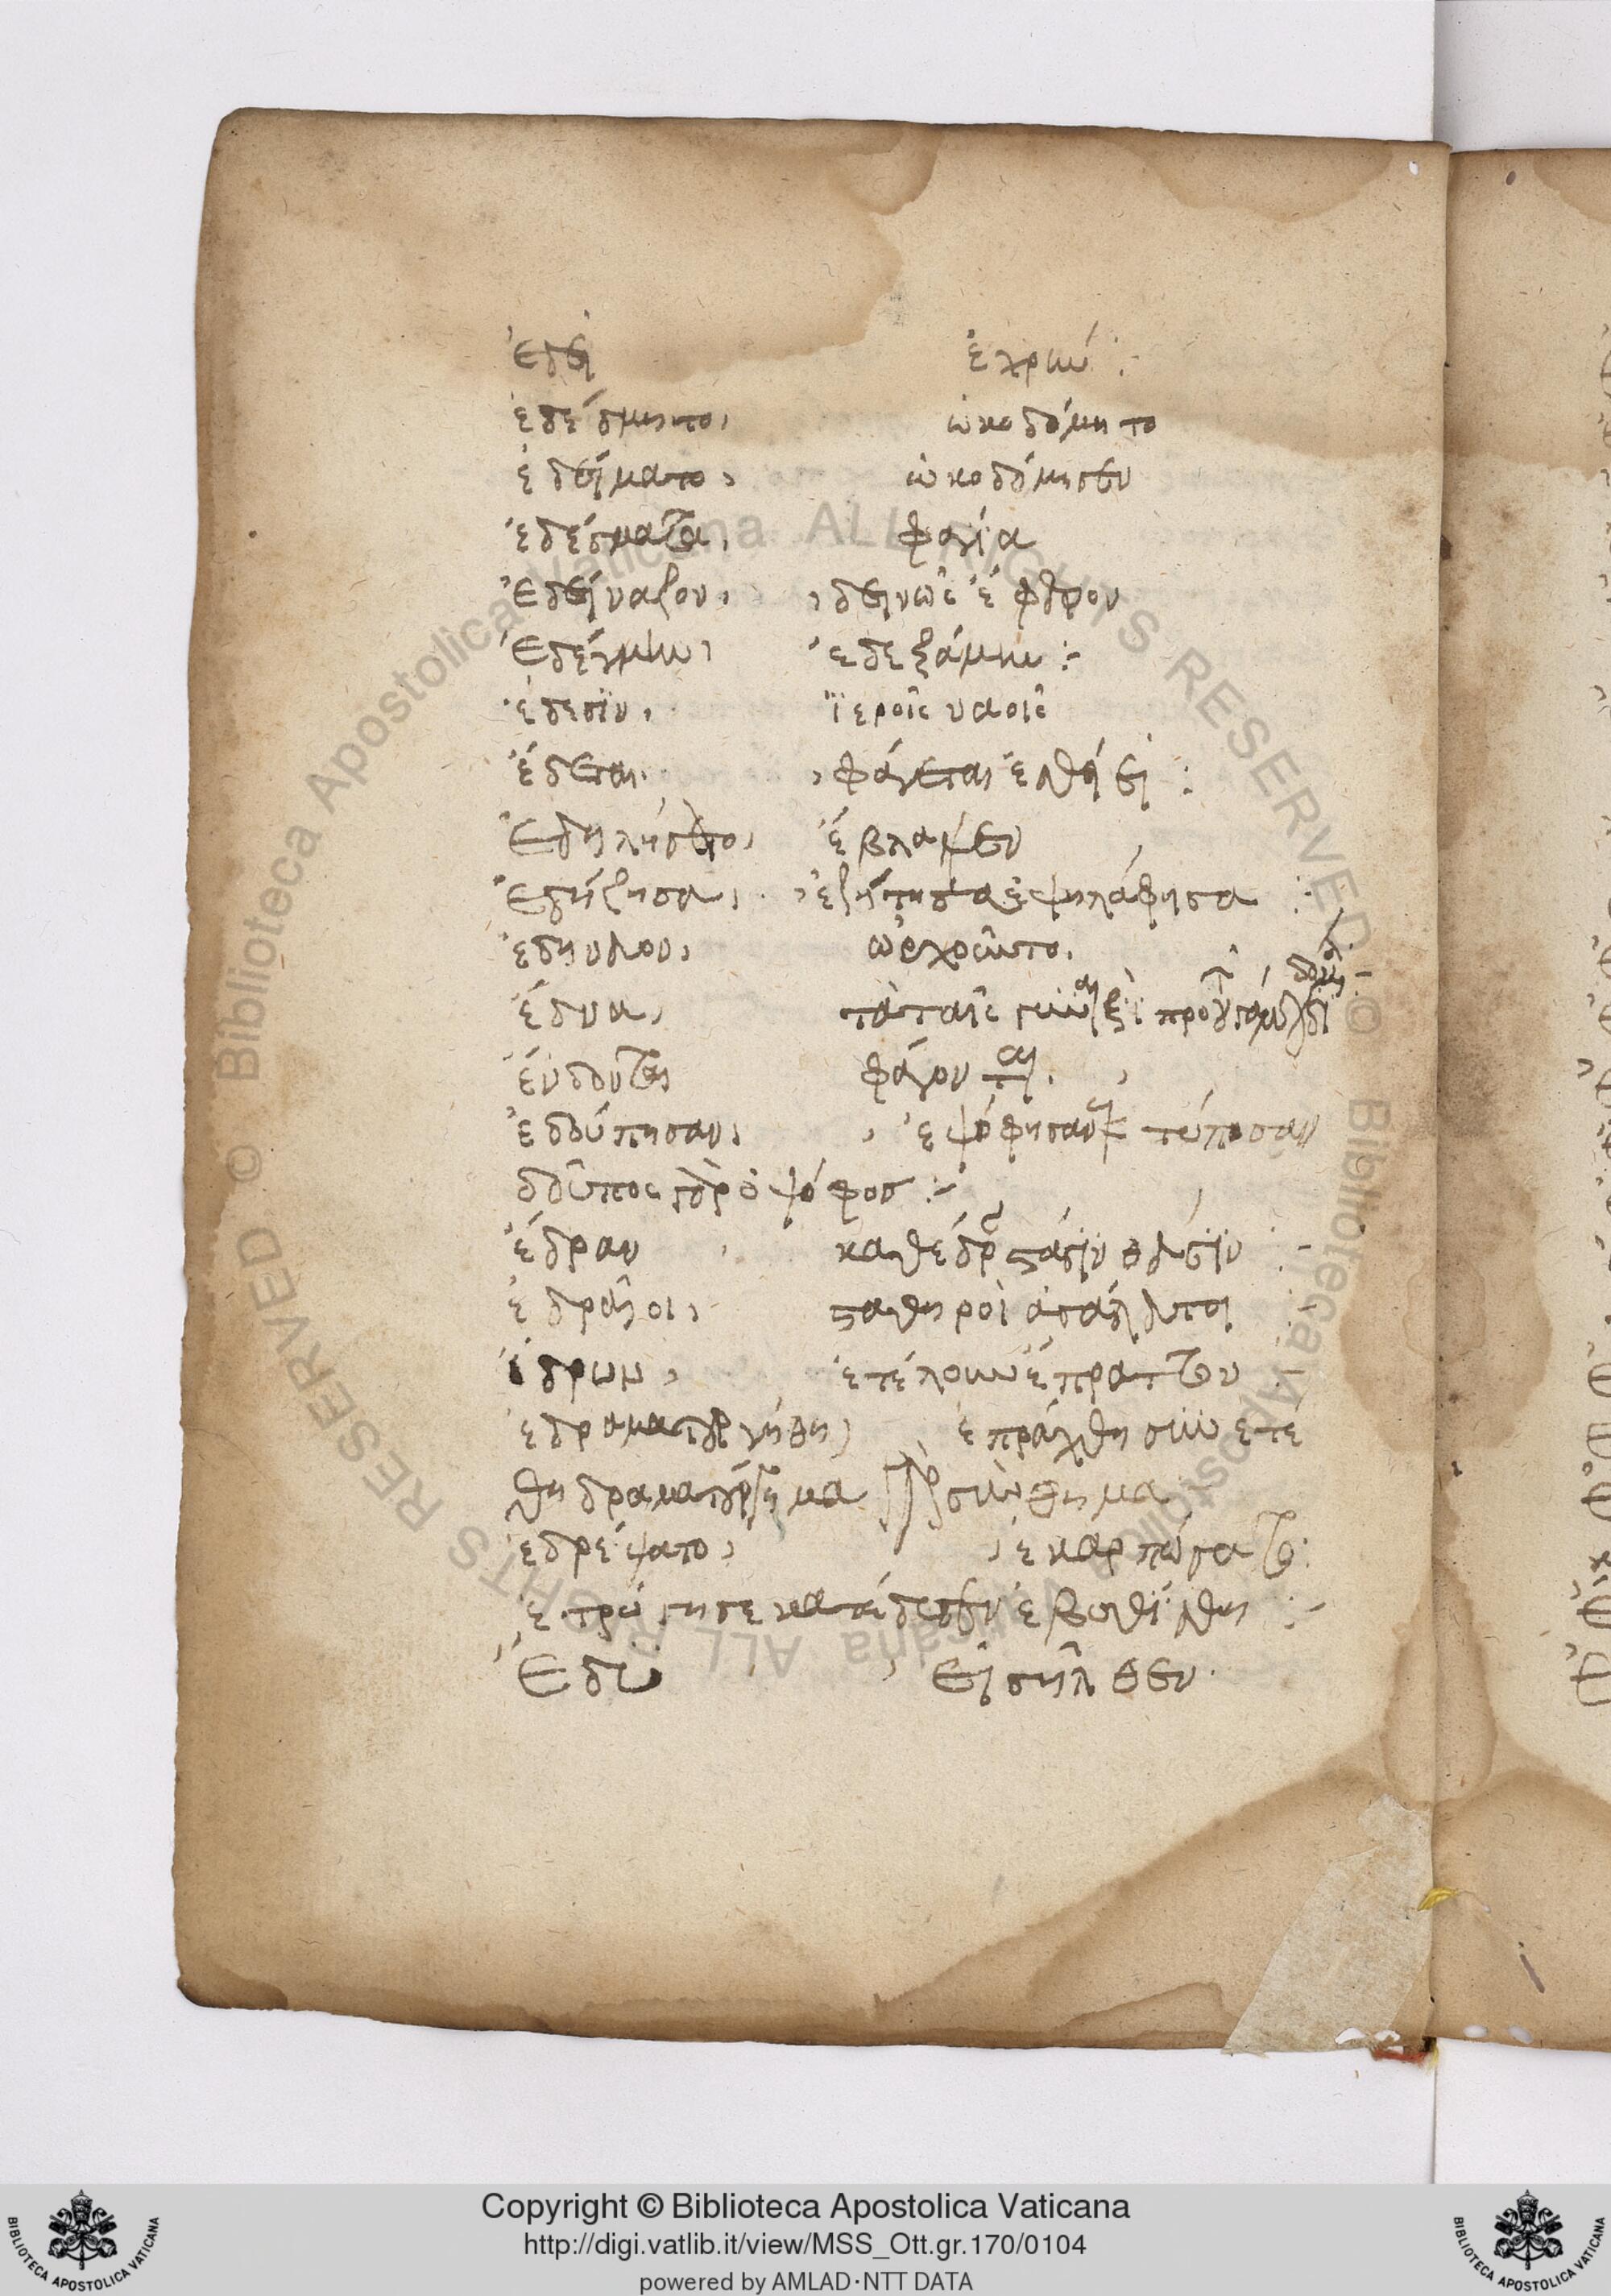 ἔδει ἐχρῆν :
ἐδέδμητο, ὠκοδόμητο
ἐδείματο, ὠκοδόμησεν
ἐδέσματα, φαγία
ἐδείναζον, δεινῶς ἔφερον
ἐδέγμην, ἐδεξάμην :-
ἕδεσϊν, ϊεροῖς ναοῖς
ἔδεται, φάγεται ἐσθίει :
ἐδηλήσατο, ἔβλαψεν
ἐδίζησα, ἐζήτησα ἐψηλάφησα :
ὠρχοῦντο.
ἕδνα, τὰ ταῖς πρὸ
φάγονται.
ἐδούπησαν, ἐψόφησαν τύπησαν
δοῦπος γὰρ ὁ ψόφος :-
ἕδραν καθέδραν στάσιν θέσιν :-
ἑδραῖοι, σταθηροὶ ἀσάλευτοι :-
ἔδρων, ἐτέλουν ἔπραττον :-
ἐδραματουργήθη, ἐπράχθη συνετέ
θη δραματούργημα γὰρ σύνθημα
ἐδρέψατο, ἐκαρπώσατο :
ἐβοηθήθη :-
ἔδυ εἰσῆλθεν.
Copyright © Biblioteca Apostolica Vaticana
http://digi.vatlib.it/view/MSS_Ott.gr.170/0104
powered by AMLAD·NTT DATA
BIBLIOTECA APOSTOLICA VATICANA
BIBLIOTECA APOSTOLICA VATICANA
© Biblioteca Apostolica Vaticana ALL RIGHTS RESERVED
© Biblioteca Apostolica Vaticana ALL RIGHTS RESERVED